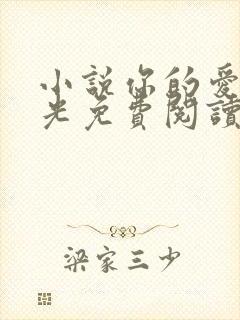 小說你的愛
光免費閱讀
梁家三少